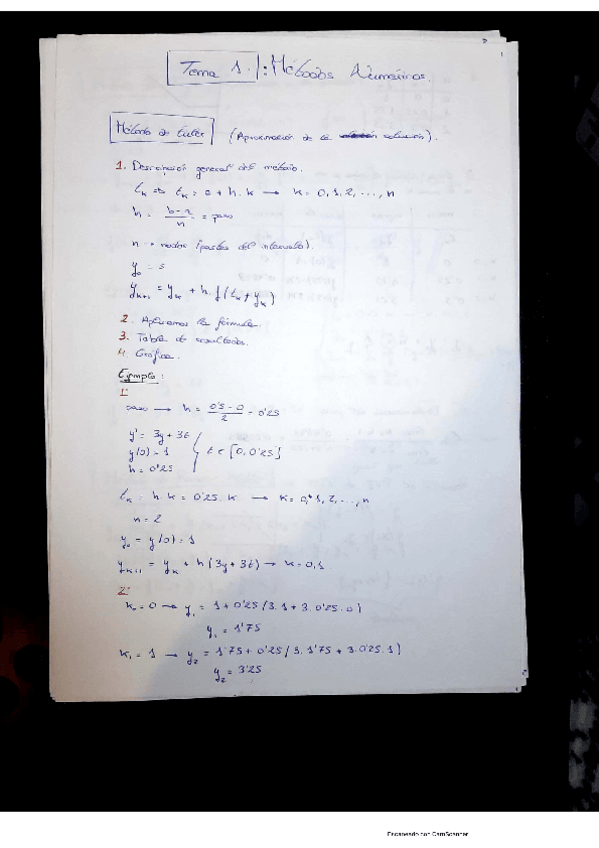 Tema 1.: Métodos Numéricos.
Método de Euler (Aproximación de la solución).
1. Descripción general del método.
tₖ => tₖ = a + h·k → k = 0,1,2,...,n
h = (b-a)/n = paso
n → nodos (partes del intervalo).
y₀ = s
yₖ₊₁ = yₖ + h·f(tₖ + yₖ)
2. Aplicamos la fórmula.
3. Tabla de resultados.
4. Gráfica.
Ejemplo:
1º
paso → h = (0'5-0)/2 = 0'25
y' = 3y + 3t
y(0) = 1 t ∈ [0,0'25]
h = 0'25
tₖ = h·k = 0'25·k → k = 0,1,2,...,n
n = 2
y₀ = y(0) = 1
yₖ₊₁ = yₖ + h(3y+3t) → k = 0,1
2º
k₀ = 0 → y₁ = 1 + 0'25(3·1 + 3·0'25·0)
y₁ = 1'75
k₁ = 1 → y₂ = 1'75 + 0'25(3·1'75 + 3·0'25·1)
y₂ = 3'25
Escaneado con CamScanner